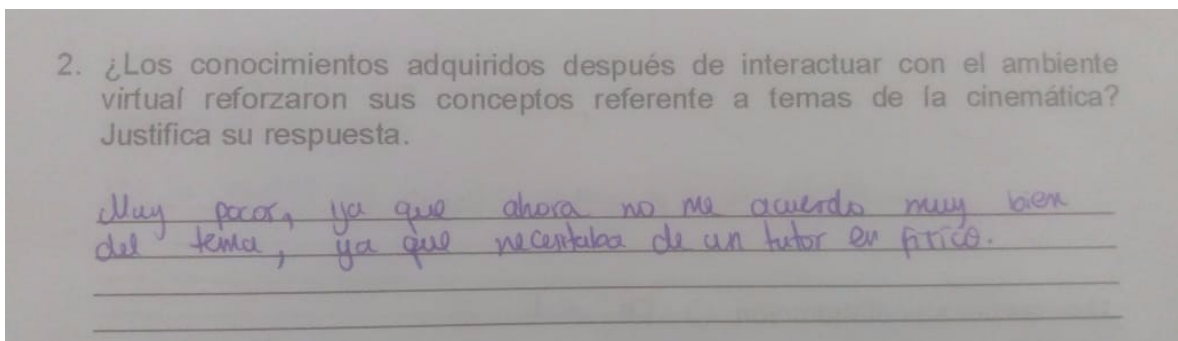 2. ¿Los conocimientos adquiridos después de interactuar con el ambiente
virtual reforzaron sus conceptos referente a temas de la cinemática?
Justifica su respuesta.
Muy pocos, ya que ahora no me acuerdo muy bien
del tema, ya que necesitaba de un tutor en físico.